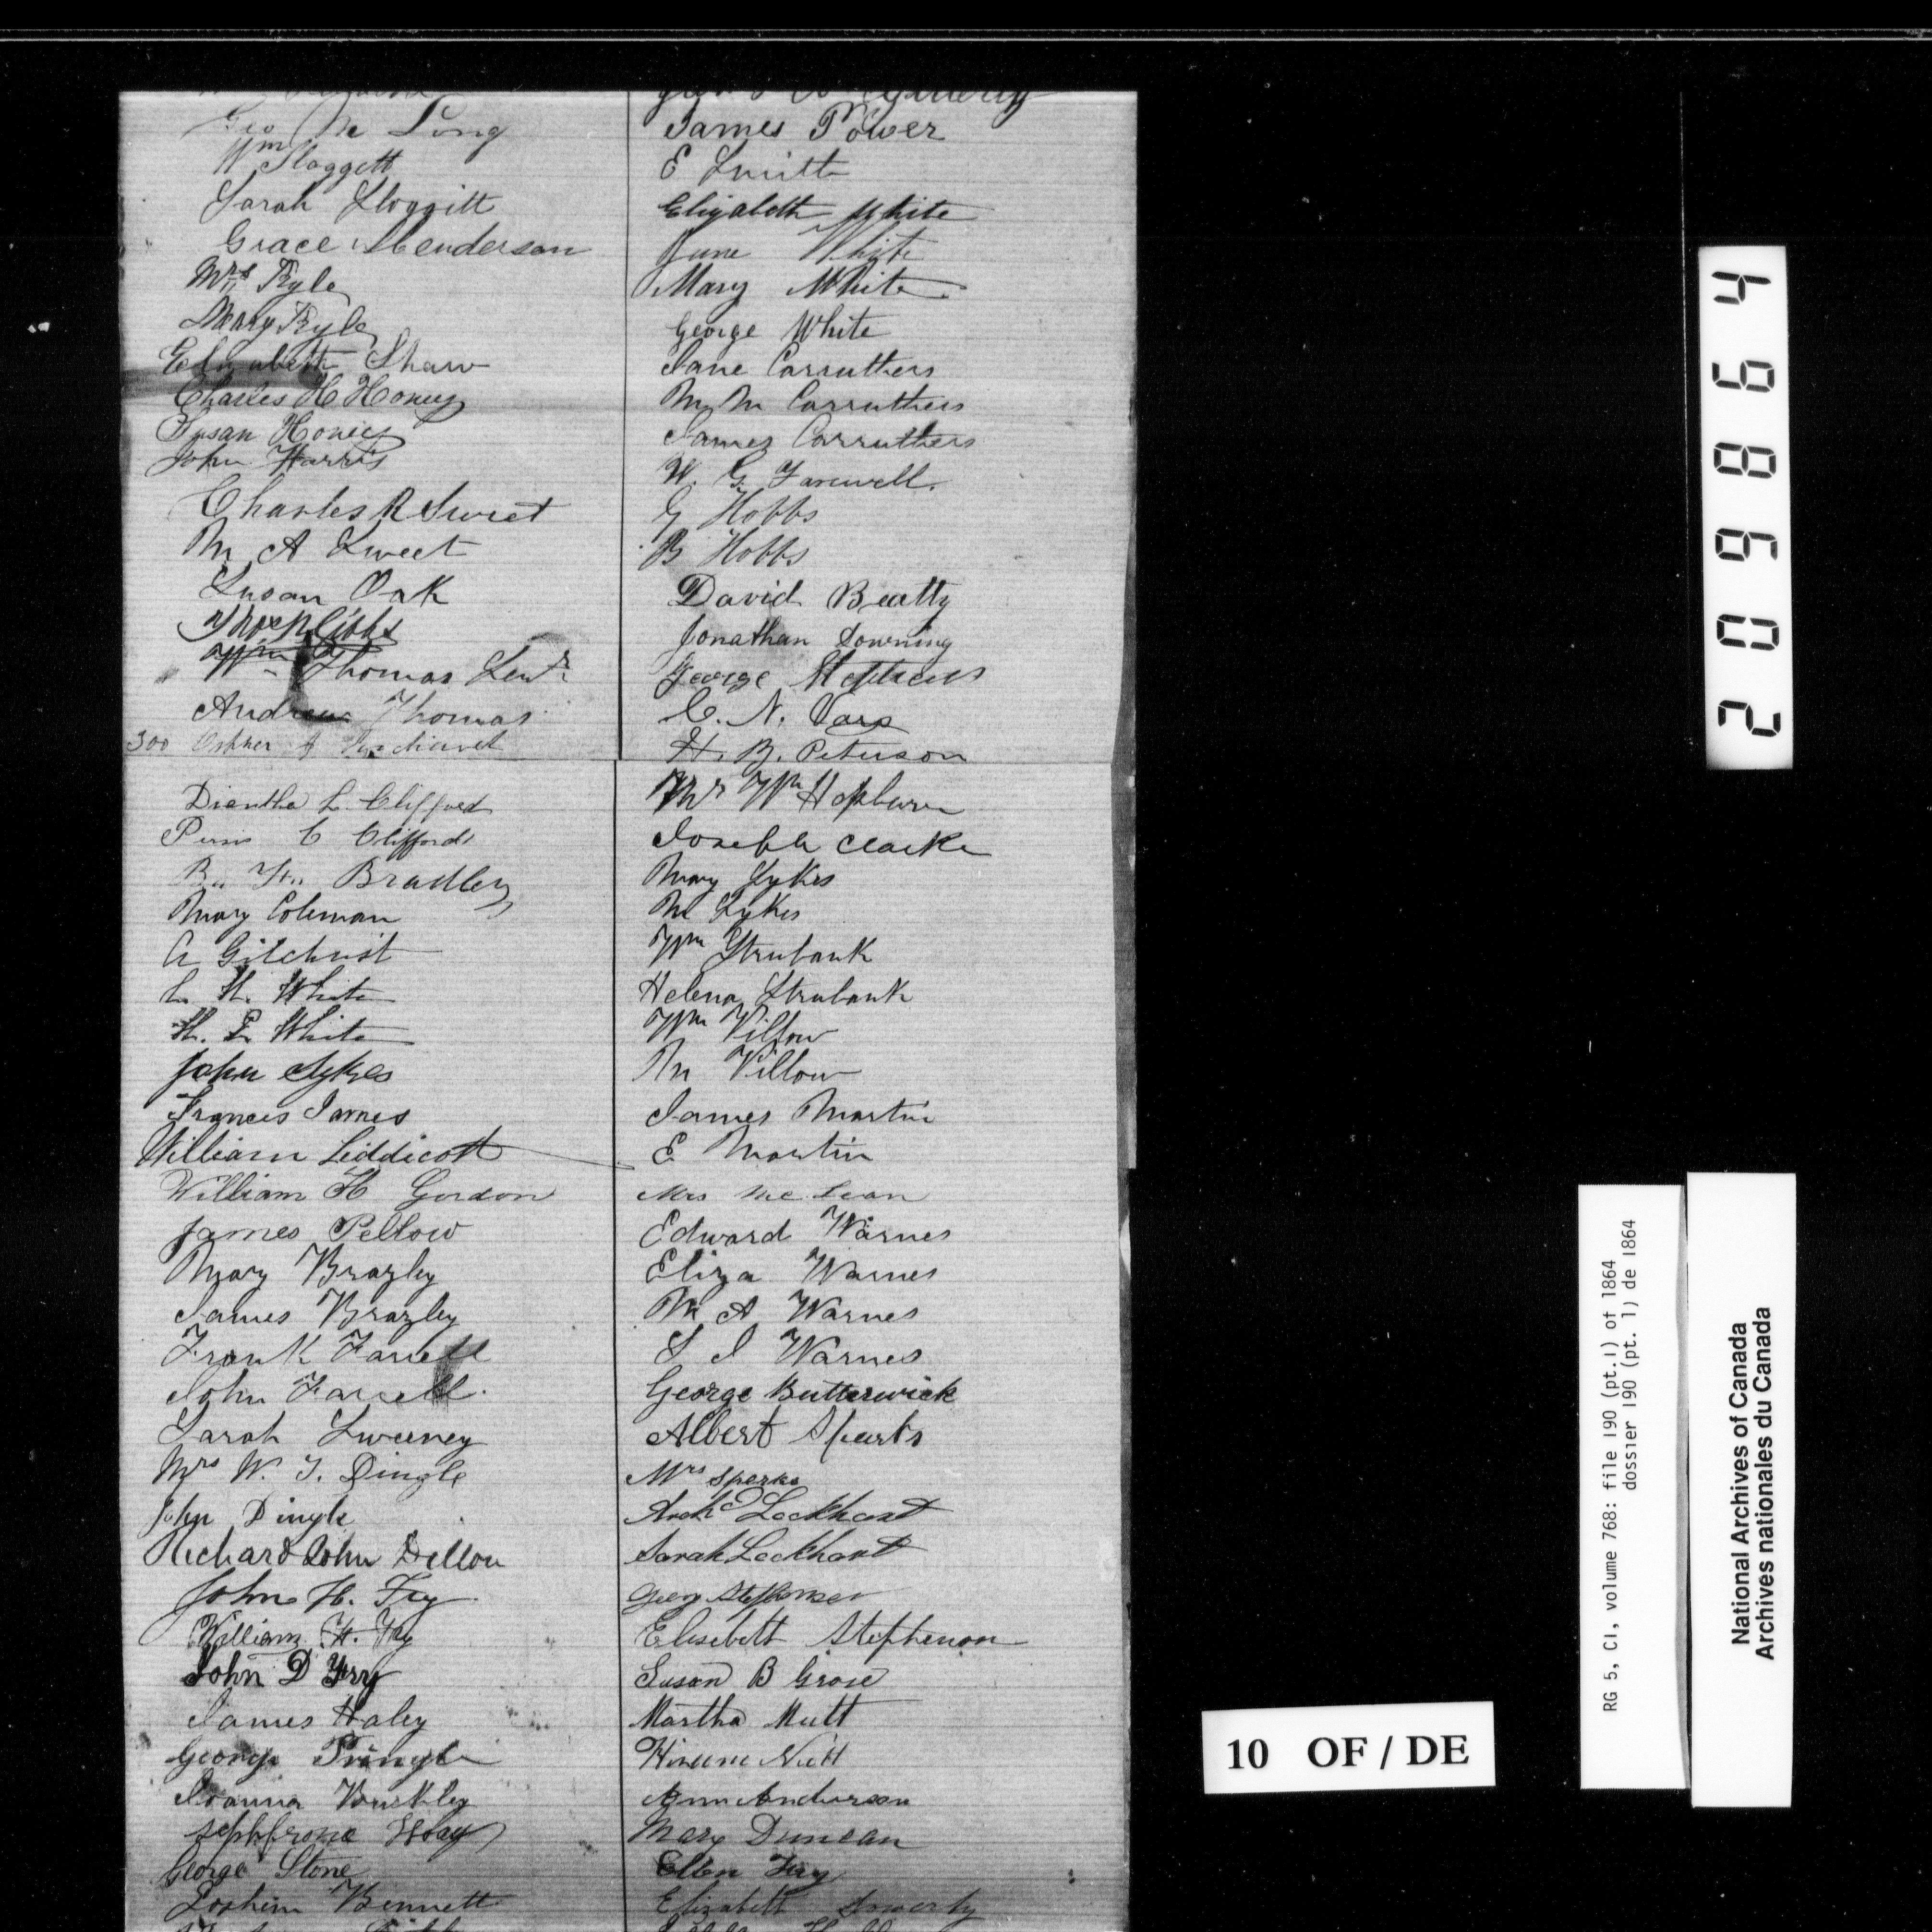 Geo Mc Long
Wm Sloggett
Sarah Sloggitt
Grace Henderson
Mrs Pyle
Mary Pyle
Elizabeth Shaw
Charles H Honey
Susan Honey
John Harris
Charles R Sweet
M A Sweet
Susan Oak
Thos Gibbs
Wm Thomas Senr
Andrew Thomas
300
Diantha L. Clifford
Persis C Clifford
Bradley
Mary Coleman
A Gilchrist
L. H. White
H. E. White
John Sykes
Frances James
William Liddicott
William H Gordon
James Pellow
Mary Brazley
James Brazley
Frank Farrell
John Farrell.
Sarah Sweeney
Mrs W. T. Dingle
John Dingle
Richard John Dellou
John H. Fry
William H. Fry
John D Fry
James Haley
George Pringle
Joanna Buckley
George Stone
Bennett
James Power
E Smith
Elizabeth White
Jane White
Mary White
George White
Jane Carruthers
M. M Carruthers
James Carruthers
W. G. Farewell.
G Hobbs
B Hobbs
David Beatty
Jonathan Downing
George Stephens
C. N. Vars
H. B. Peterson
Mr Wm Hepburn
Joseph Clarke
Mary Sykes
M Sykes
Wm Strubank
Helena Strubank
Wm Villow
M Villow
James Martin
E Martin
Mrs McLean
Edward Warnes
Eliza Warnes
M A Warnes
S J Warnes
George Butterwick
Albert Sparks
Mrs Sparks
Archd Lockhart
Sarah Lockhart
Elisebett Stephenson
Susan B Grose
Martha Mutt
Ann Anderson
Mary Duncan
Ellen Fry
Elizabeth
209864
10 OF / DE
RG 5, C1, volume 768: file 190 (pt.1) of 1864
dossier 190 (pt. 1) de 1864
National Archives of Canada
Archives nationales du Canada